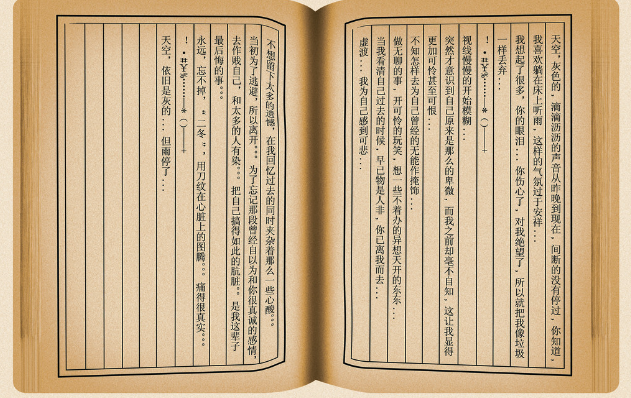 天空，灰色的，滴滴沥沥的声音从昨晚到现在，间断的没有停过，你知道，
我喜欢躺在床上听雨，这样的气氛过于安祥...
我想起了很多，你的眼泪...你伤心了，对我绝望了，所以就把我像垃圾
一样丢弃...
视线慢慢的开始模糊...
突然才意识到自己原来是那么的卑微，而我之前却毫不自知，这让我显得
更加可怜甚至可恨...
不知怎样去为自己曾经的无能作掩饰...
做无聊的事，开可怜的玩笑，想一些不着办的异想天开的东东...
当我看清自己过去的时候，早已物是人非，你已离我而去...
虚渡...我为自己感到可悲...
不想留下太多的遗憾，在我回忆过去的同时夹杂着那么一些心酸。。。
当初为了逃避，所以离开***为了忘记那段曾经自以为和你很真诚的感情，
去作贱自己，和太多的人有染。。。把自己搞得如此的肮脏**是我这辈子
最后悔的事。。。
永远，忘不掉，“二冬“，用刀纹在心脏上的图腾。。。痛得很真实。。。
天空，依旧是灰的...但雨停了...